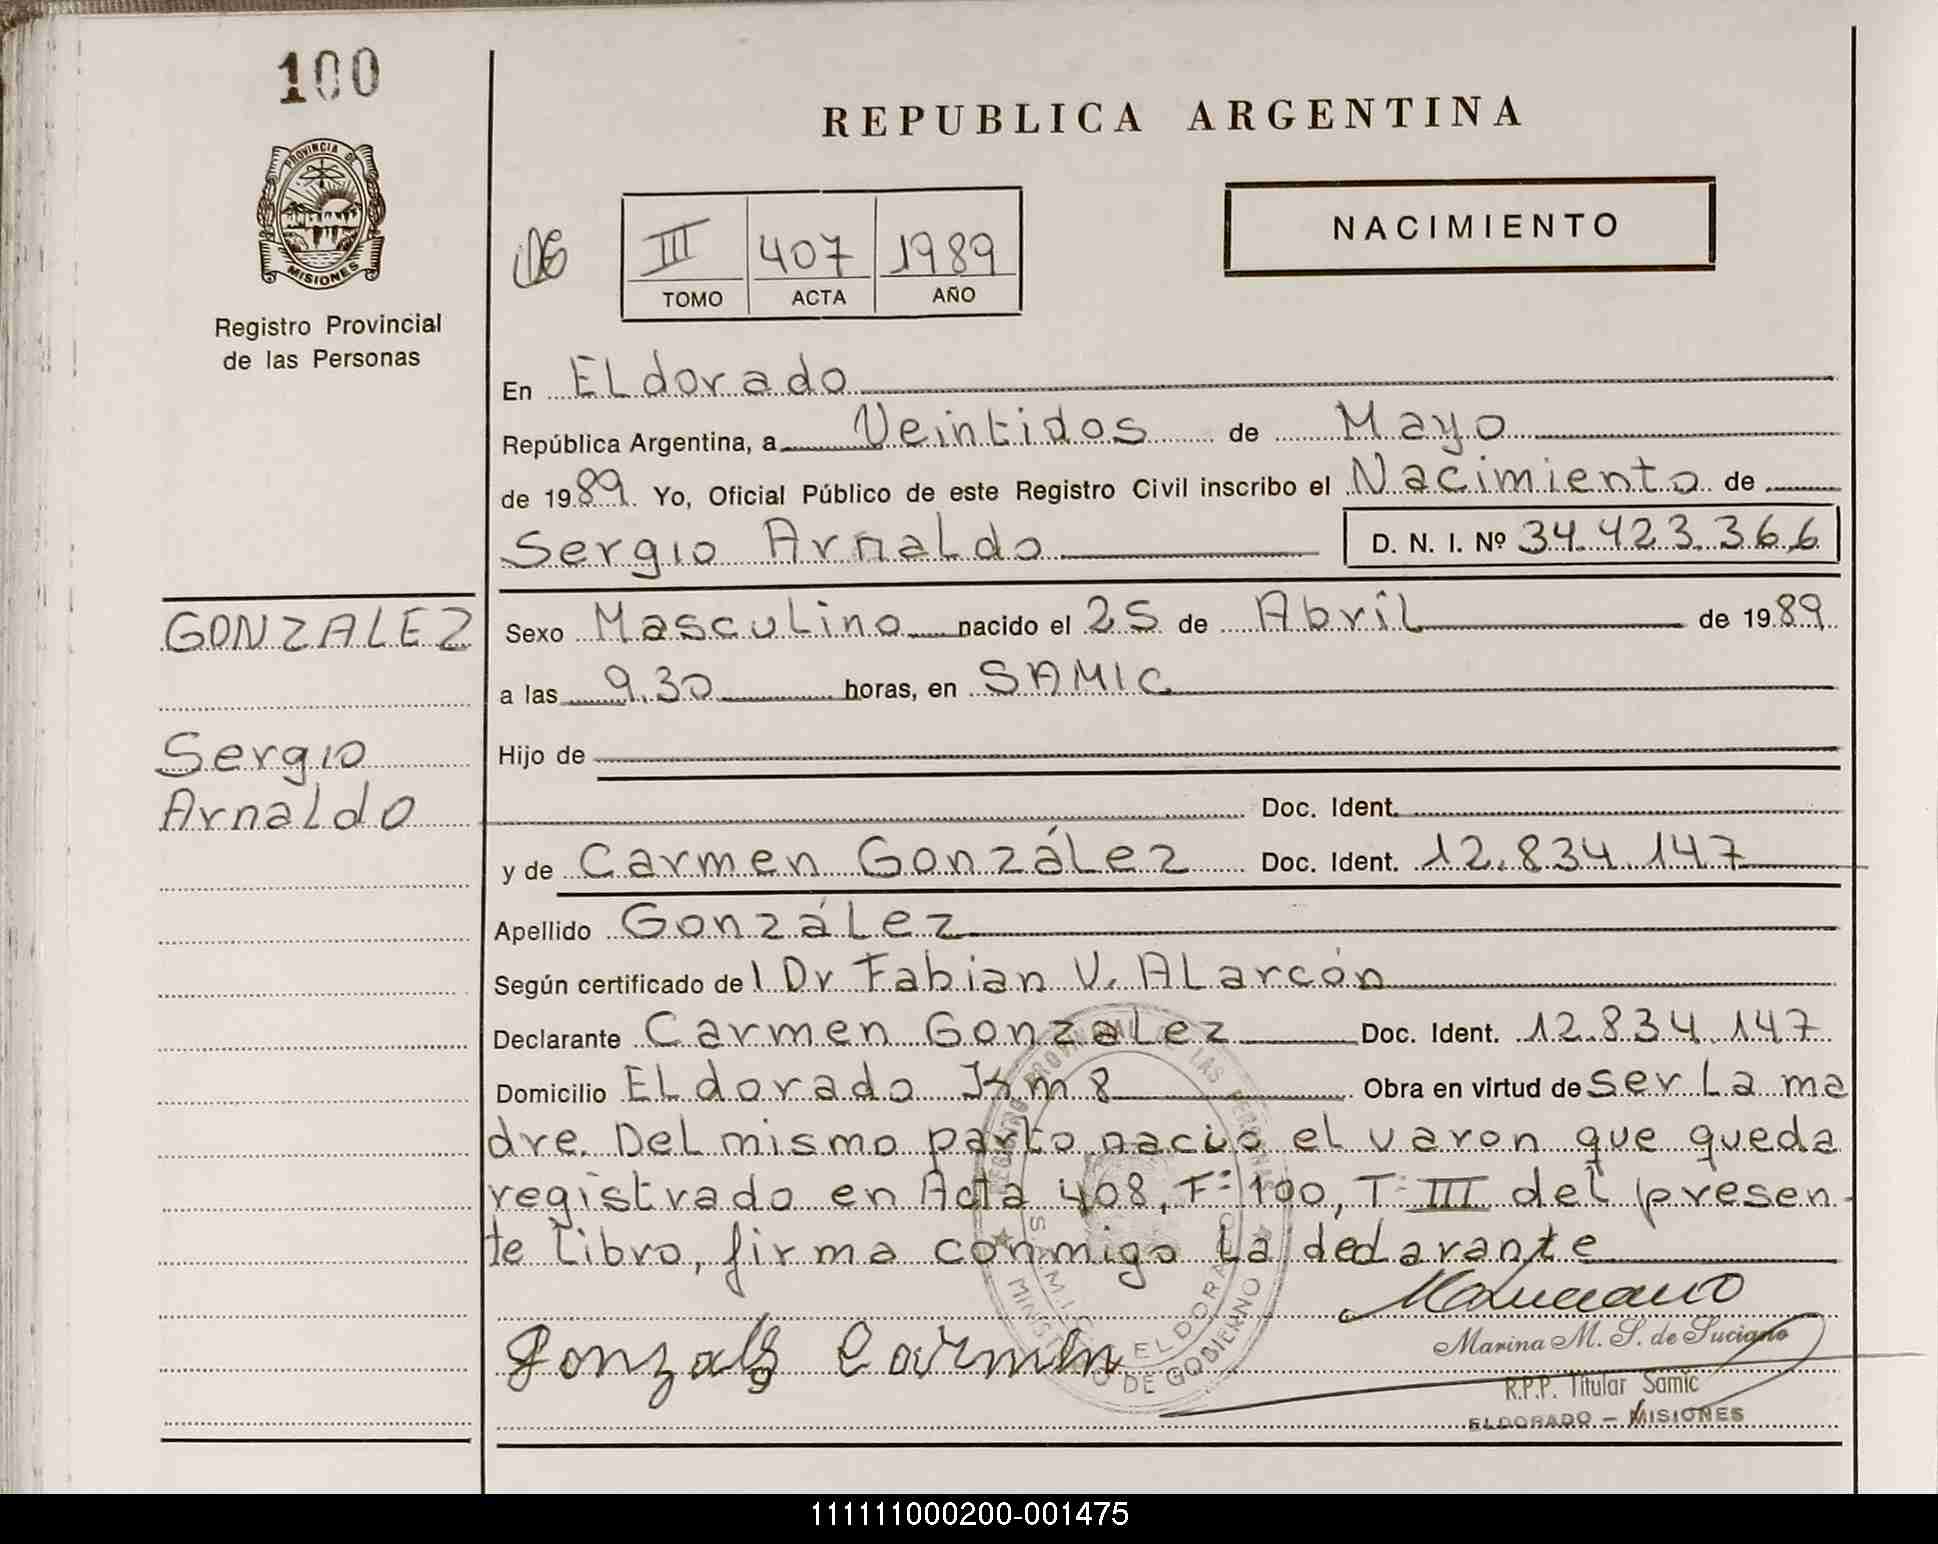 100
PROVINCIA DE
MISIONES
Registro Provincial
de las Personas
GONZALEZ
Sergio
Arnaldo
REPUBLICA ARGENTINA
III 407 1989
TOMO ACTA AÑO
NACIMIENTO
En ELdorado
República Argentina, a Veintidos de Mayo
de 1989. Yo, Oficial Público de este Registro Civil inscribo el Nacimiento de
Sergio Arnaldo D. N. I. Nº 34.423.366
Sexo Masculino nacido el 25 de Abril de 1989
a las 9.30 horas, en SAMIC
Hijo de
Doc. Ident.
y de Carmen González Doc. Ident. 12.834.147
Apellido González
Según certificado del Dr Fabian V. ALarcón
Declarante Carmen Gonzalez Doc. Ident. 12.834.147
Domicilio ELdorado Km 8 Obra en virtud de ser La ma
dre. Del mismo parto nacio el varon que queda
registrado en Acta 408, Fº 100, Tº III del presen-
te Libro, firma conmigo La declarante
Gonzalez Carmen
Marina M. S. de Suciano
R.P.P. Titular Samic
ELDORADO - MISIONES
REGISTRO PROVINCIAL DE LAS PERSONAS
S.A.M.I.C. ELDORADO
MINISTERIO DE GOBIERNO
111111000200-001475